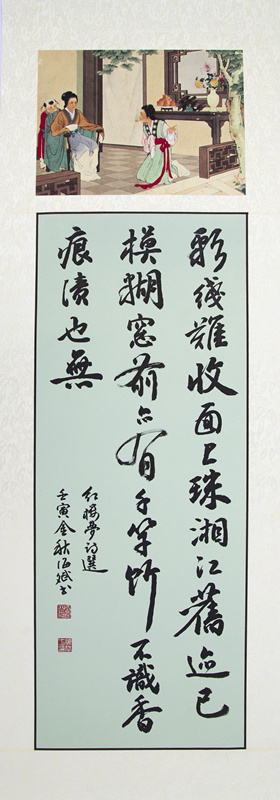 彩綫難收面上珠湘江舊迹已
模糊窓前亦有千竿竹不識香
痕漬也無
红楼夢诗選
壬寅金秋海斌书